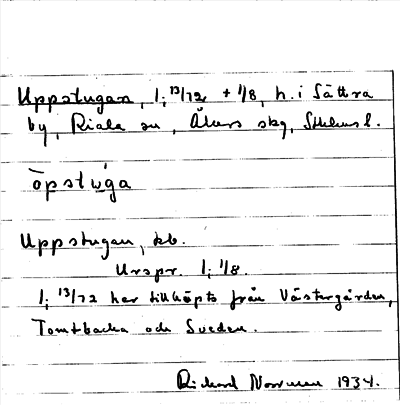 Uppstugan, 1; 13/72 + 1/8, h. i Sättra
by, Riala sn, Åkers skg, Sthlms l.
ōpstúga
Uppstugan, bb.
Urspr. 1; 1/8.
1; 13/72 har tillköpts från Västergården,
Tomtbacka och Sveden.
Rickard Norrman 1934.